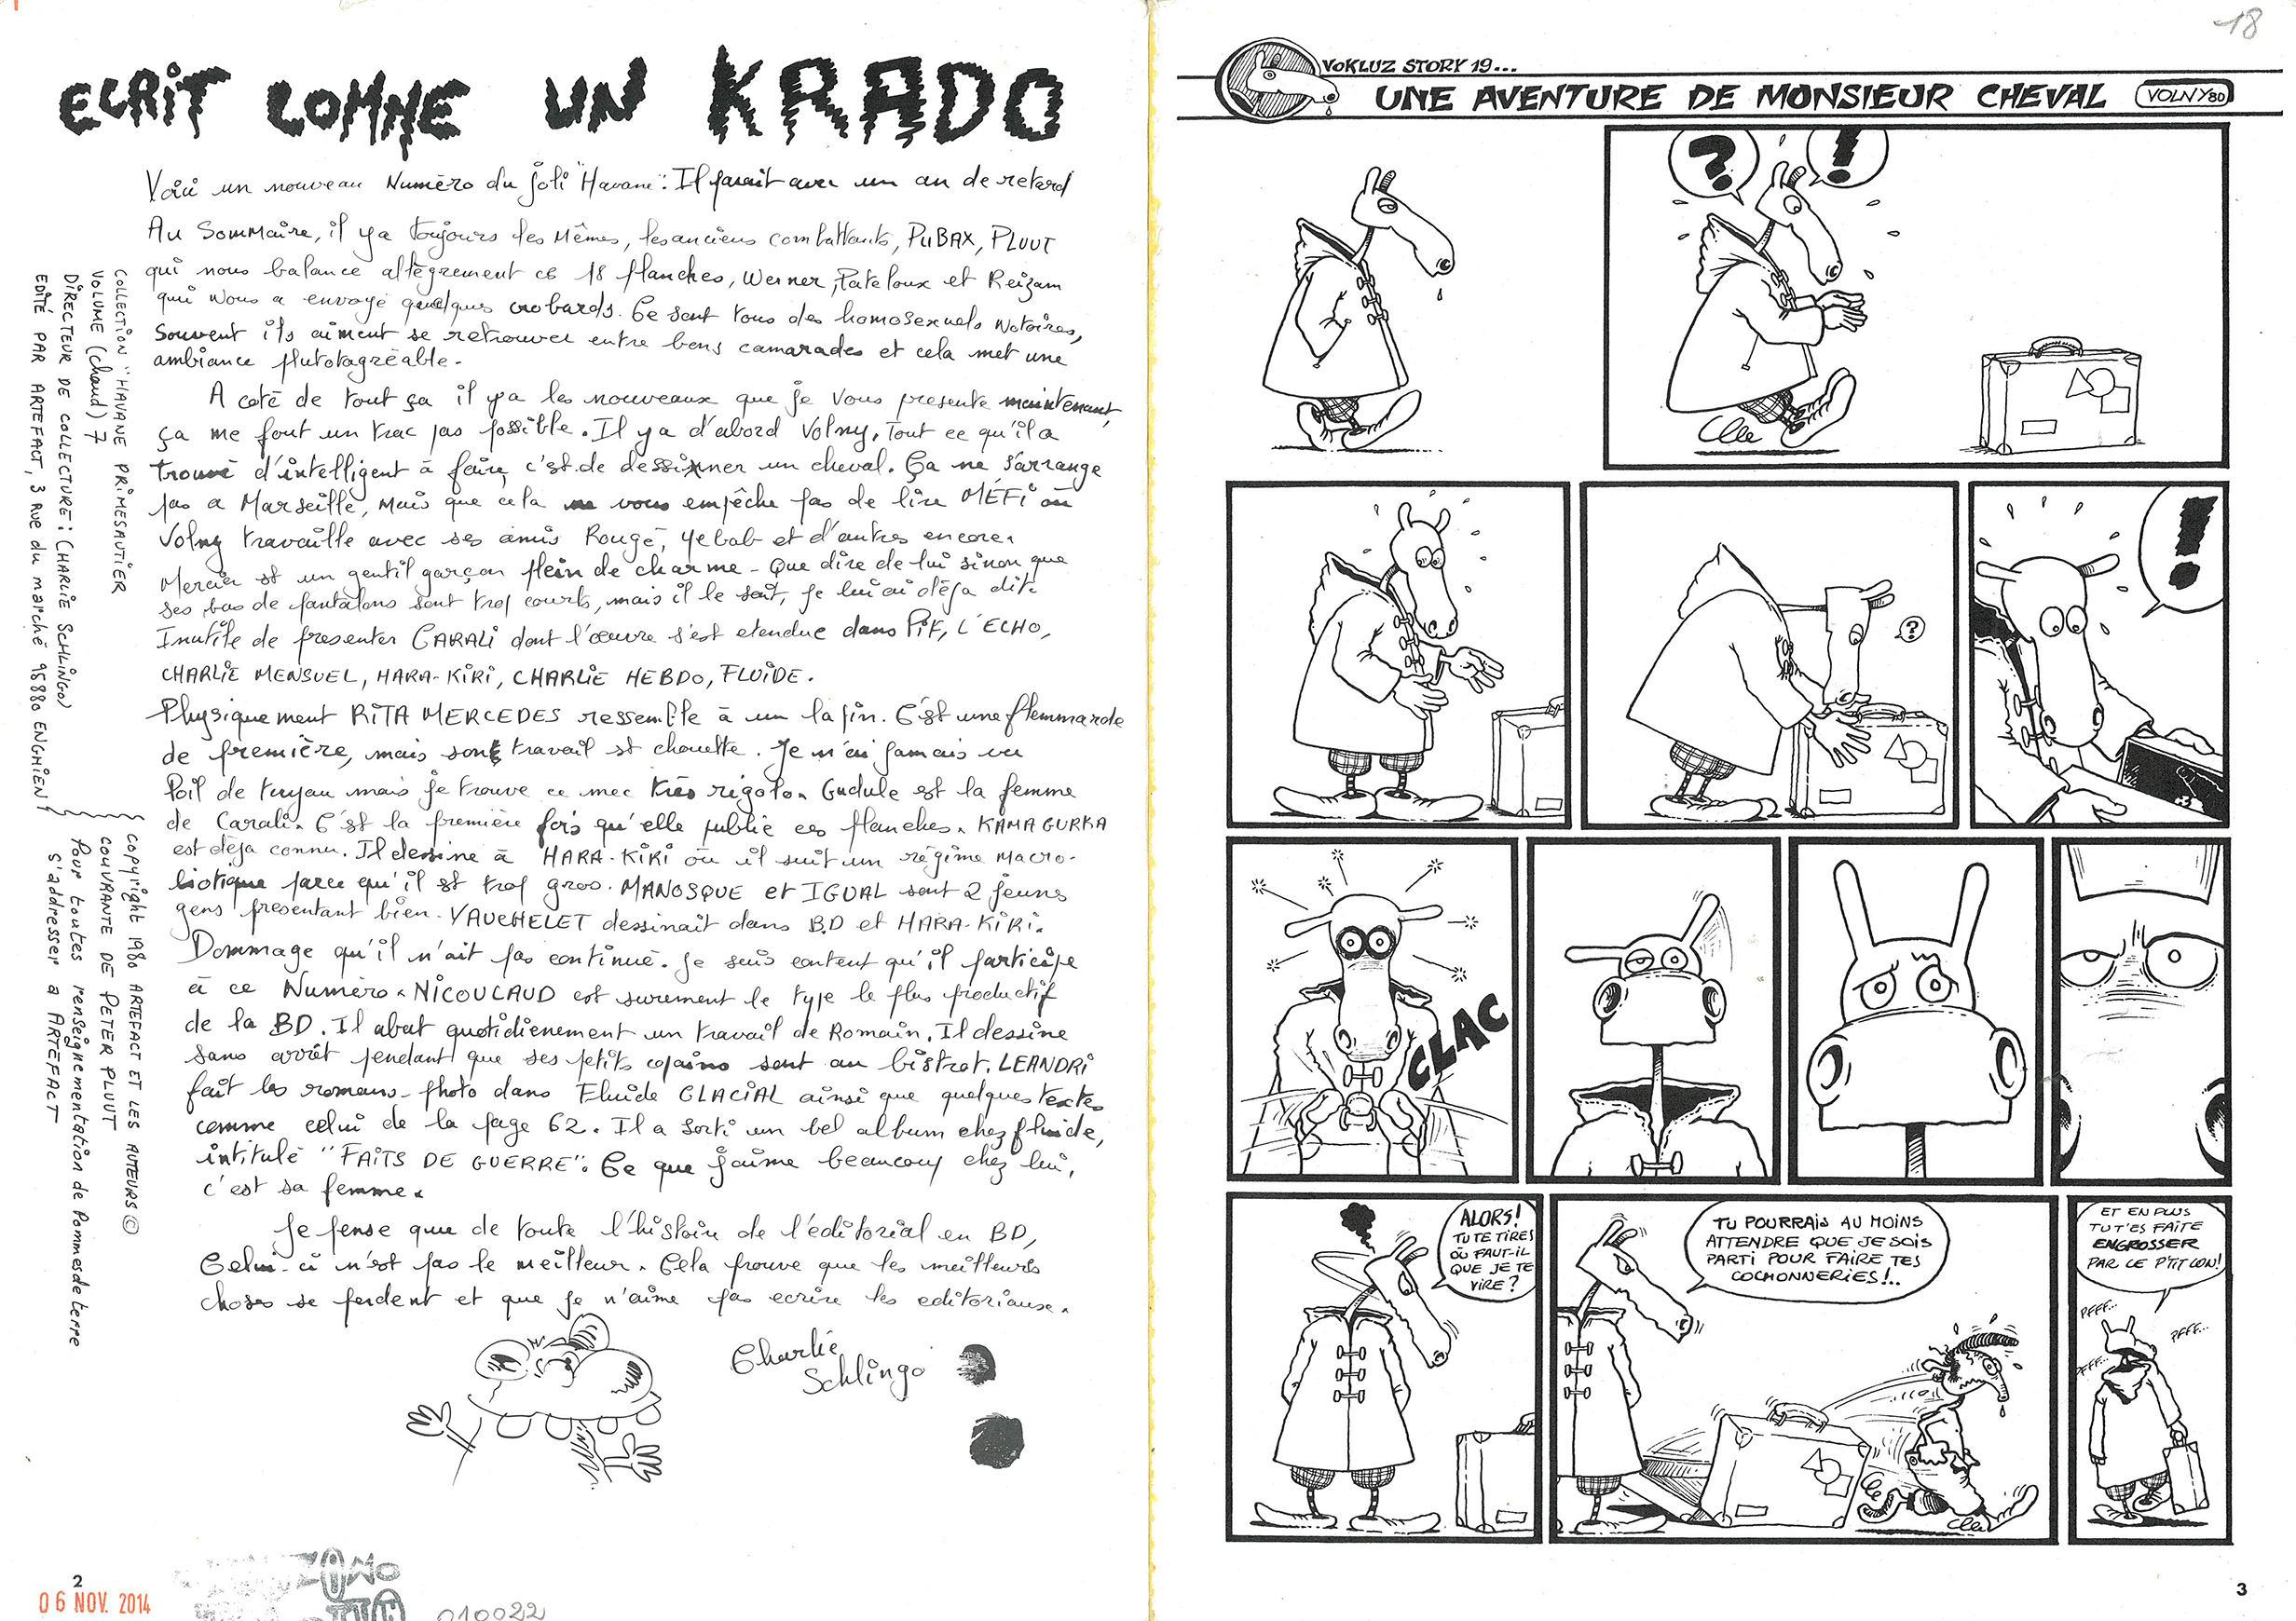 ECRIT COMME UN KRADO
Voici un nouveau Numéro du joli "Havane": Il parait avec un an de retard
Au Sommaire, il y a toujours les Mêmes, les anciens combattants, PUBAX, PLUUT
qui nous balance allègrement ces 18 planches, Werner, Pateloux et Reizam
qui nous a envoyé quelques crobards. Ce sont tous des homosexuels notoires,
Souvent ils aiment se retrouver entre bons camarades et cela met une
ambiance plutôt agréable.
A coté de tout ça il y a les nouveaux que je vous presente maintenant,
ça me fout un trac pas possible. Il y a d'abord Volny. Tout ce qu'il a
trouvé d'intelligent à faire, c'est de dessinner un cheval. Ça ne s'arrange
pas a Marseille, Mais que cela ne vous empêche pas de lire MÉFI où
Volny travaille avec ses amis Rouge, Yebab et d'autres encore.
Mercier est un gentil garçon plein de charme - Que dire de lui sinon que
ses bas de pantalons sont trop courts, mais il le sait, je lui ai déja dit.
Inutile de presenter CARALI dont l'œuvre s'est etendue dans PIF, L'ECHO,
CHARLIE MENSUEL, HARA-KIRI, CHARLIE HEBDO, FLUIDE.
Physiquement RITA MERCEDES ressemble à un lapin. C'est une flemmarde
de première, mais son travail est chouette. Je n'ai jamais vu
Poil de tuyau mais je trouve ce mec très rigolo. Gudule est la femme
de Carali. C'est la première fois qu'elle publie ces planches. KAMAGURKA
est déja connu. Il dessine à HARA-KIRI où il suit un régime macro-
biotique parce qu'il est trop gros. MANOSQUE et IGUAL sont 2 jeunes
gens presentant bien. VAUCHELET dessinait dans B.D et HARA-KIRI.
Dommage qu'il n'ait pas continué. Je suis content qu'il participe
à ce Numéro. NICOULAUD est surement le type le plus productif
de la BD. Il abat quotidienement un travail de Romain. Il dessine
sans arrêt pendant que ses petits copains sont au bistrot. LEANDRI
fait les romans-photo dans Fluide GLACIAL ainsi que quelques textes
comme celui de la page 62. Il a sorti un bel album chez fluide,
intitulé "FAITS DE GUERRE". Ce que j'aime beaucoup chez lui,
c'est sa femme.
Je pense que de toute l'histoire de l'éditorial en BD,
Celui-ci n'est pas le meilleur. Cela prouve que les meilleurs
choses se perdent et que je n'aime pas ecrire les editoriaux.
Charlie
Schlingo
COLLECTION "HAVANE PRIMESAUTIER
VOLUME (chaud) 7
DIRECTEUR DE COLLECTURE: (CHARLIE SCHLINGO)
EDITÉ PAR ARTEFACT, 3 Rue du marché 95880 ENGHIEN
Copyright 1980 ARTEFACT ET LES AUTEURS ©
COUVRANTE DE PETER PLUUT
Pour toutes renseignementation de Pommes de terre
s'addresser a ARTEFACT
2
06 NOV. 2014
010022
18
VOKLUZ STORY 19...
UNE AVENTURE DE MONSIEUR CHEVAL
VOLNY80
?
!
?
!
CLAC
ALORS!
TU TE TIRES
OÙ FAUT-IL
QUE JE TE
VIRE?
TU POURRAIS AU MOINS
ATTENDRE QUE JE SOIS
PARTI POUR FAIRE TES
COCHONNERIES!..
ET EN PLUS
TU T'ES FAITE
ENGROSSER
PAR CE P'TIT CON!
PFFF...
PFFF...
PFFF...
3